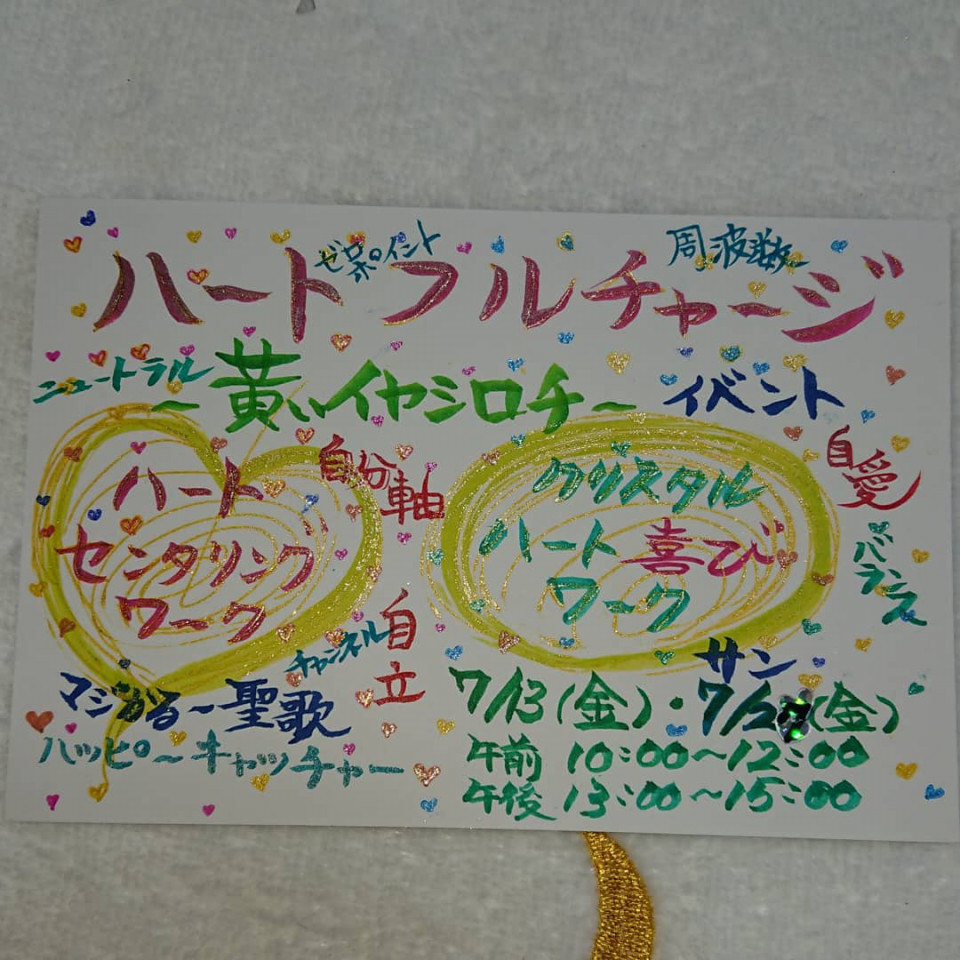 ゼロポイント
周波数
ハートフルチャージ
ニュートラル
～黄いイヤシロチ～
イベント
ハート
センタリング
ワーク
自分軸
クリスタル
ハート喜び
ワーク
自愛
バランス
チャンネル
自立
マジかる～聖歌
ハッピ～キャッチャー
サン
7/13(金)・7/2(金)
午前 10:00～12:00
午後 13:00～15:00